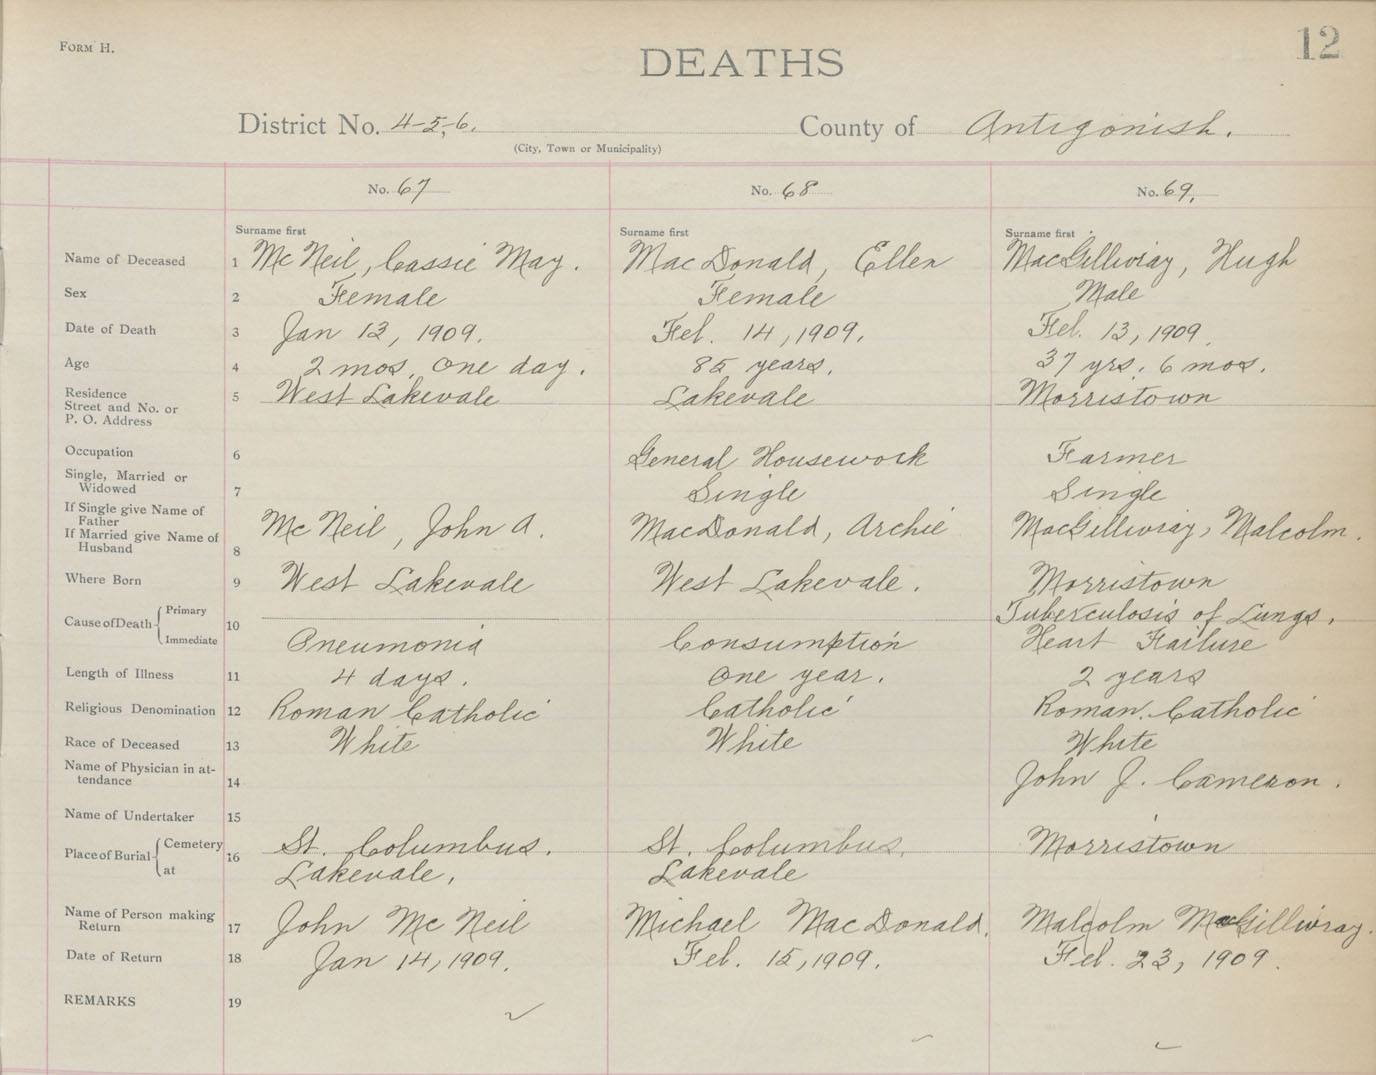 FORM H.
12
DEATHS
District No. 4-5,-6. County of Antigonish.
(City, Town or Municipality)
No. 67 No. 68 No. 69.
Surname first Surname first Surname first
Name of Deceased 1 McNeil, Cassie May. MacDonald, Ellen MacGillivray, Hugh
Sex 2 Female Female Male
Date of Death 3 Jan 13, 1909. Feb. 14, 1909. Feb. 13, 1909.
Age 4 2 mos. One day. 85 years. 37 yrs. 6 mos.
Residence
Street and No. or
P. O. Address 5 West Lakevale Lakevale Morristown
Occupation 6 General Housework Farmer
Single, Married or
Widowed 7 Single Single
If Single give Name of
Father
If Married give Name of
Husband 8 McNeil, John A. MacDonald, Archie MacGillivray, Malcolm.
Where Born 9 West Lakevale West Lakevale. Morristown
Cause of Death Primary 10 Tuberculosis of Lungs.
Immediate Pneumonia Consumption Heart Failure
Length of Illness 11 4 days. One year. 2 years
Religious Denomination 12 Roman Catholic Catholic Roman. Catholic
Race of Deceased 13 White White White
Name of Physician in at-
tendance 14 John J. Cameron.
Name of Undertaker 15
Place of Burial Cemetery 16 St. Columbus. St. Columbus. Morristown
at Lakevale. Lakevale
Name of Person making
Return 17 John McNeil Michael MacDonald. Malcolm MacGillivray.
Date of Return 18 Jan 14, 1909. Feb. 15, 1909. Feb. 23, 1909.
REMARKS 19